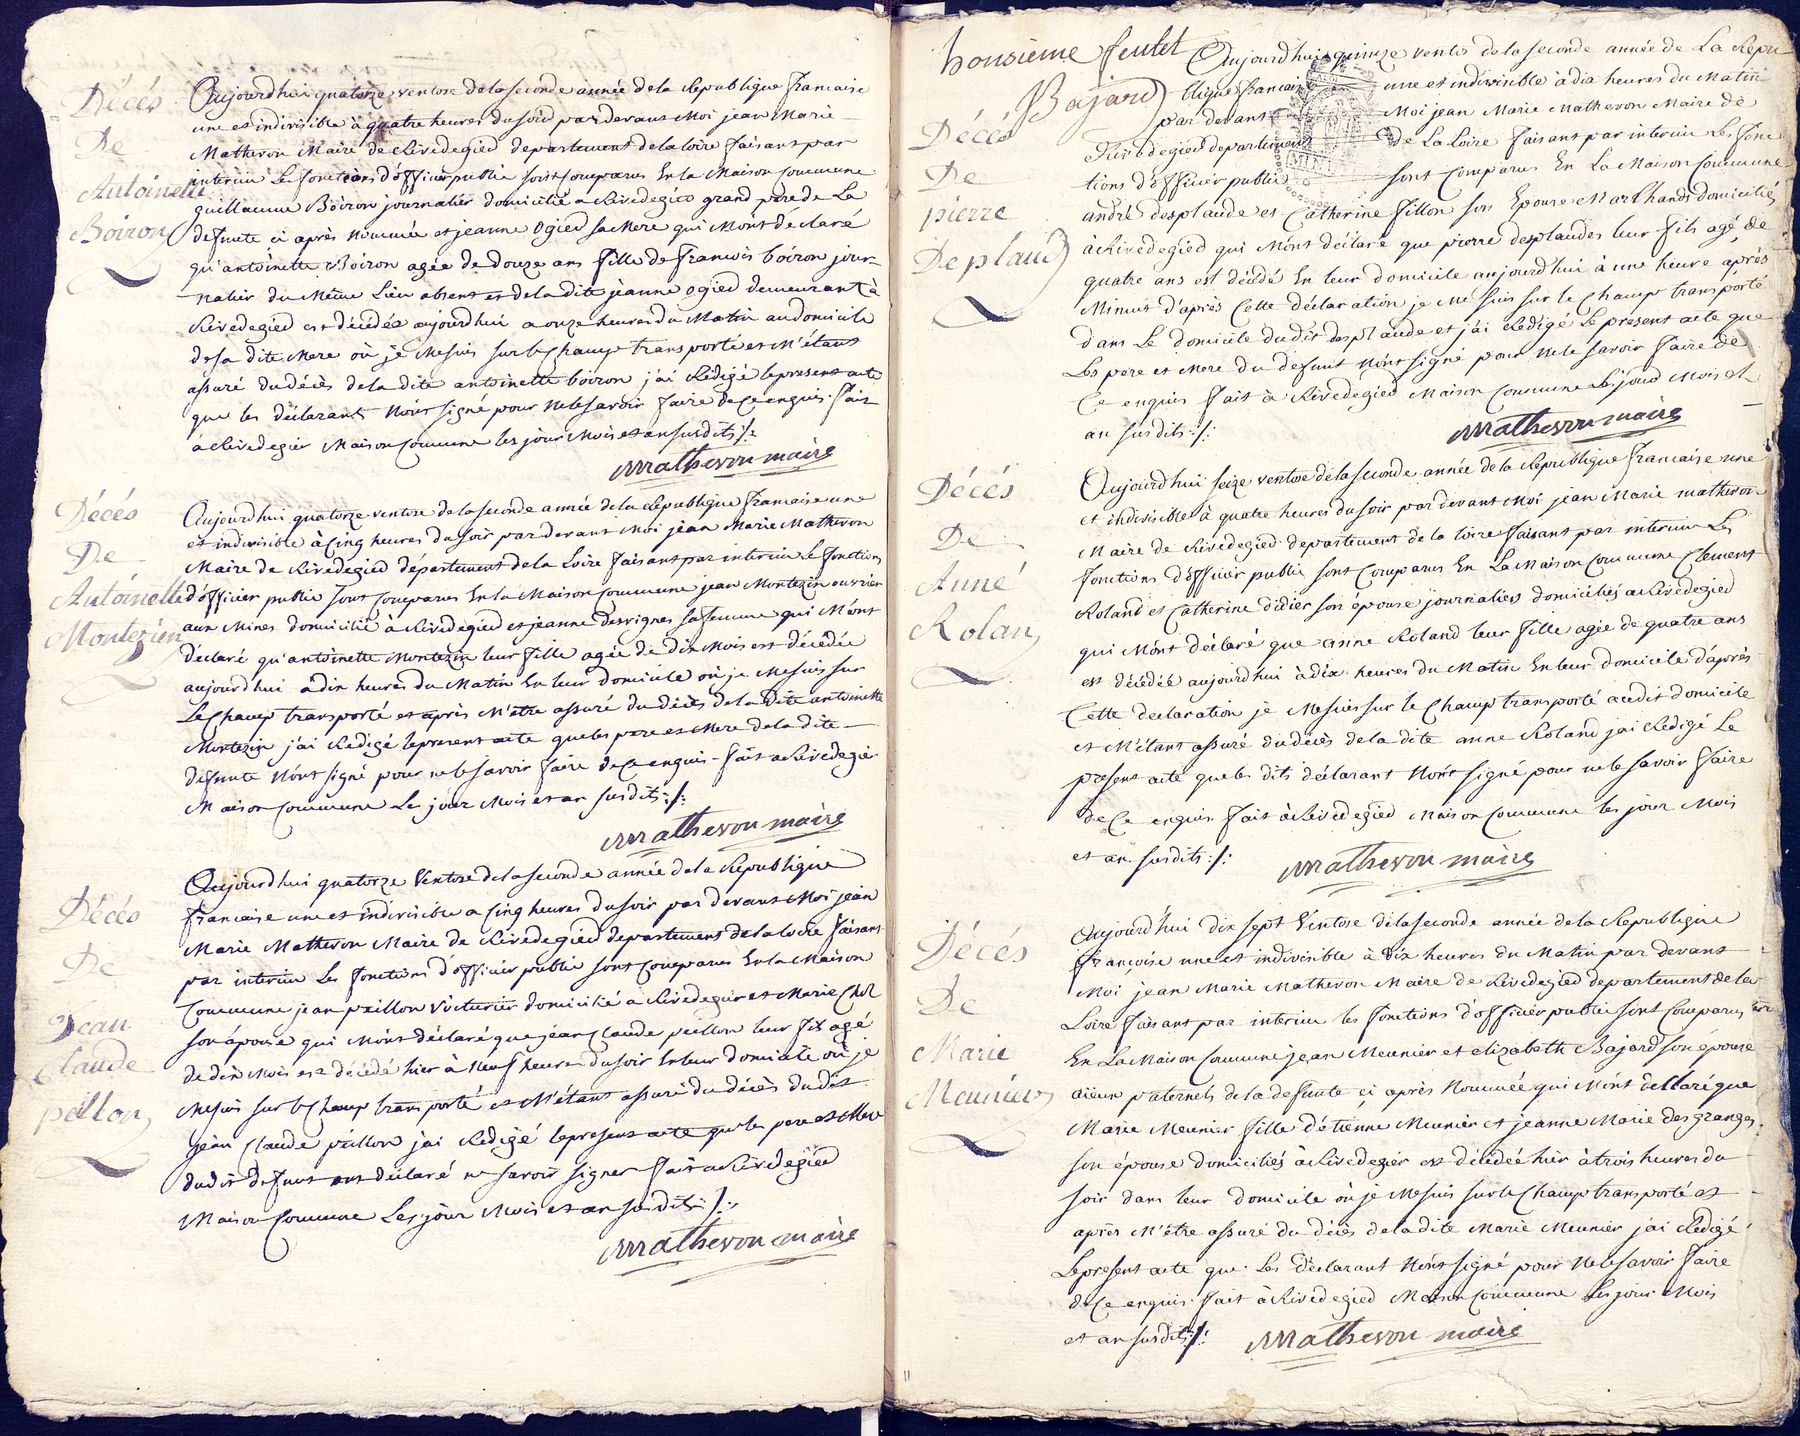 Décés
De
Antoinette
Boiron
Aujourdhui quatorze ventose dela seconde année dela Republique francaise
une et indivisible à quatre heures du soir par devant Moi jean Marie
Matheron Maire de Rivedegied departement dela loire faisant par
interim les fonctions d'officier public sont comparus En la Maison commune
guillaume Boiron journalier domicilié a Rivedegied grand pere de La
defunte ci après nommée et jeanne ogied sa Mere qui M'ont déclaré
qu'antoinette Boiron agée de douze ans fille de francois boiron jour-
nalier du Même Lieu absent et dela dite jeanne ogied demeurant à
Rivedegied est décédée aujourdhui a onze heures du Matin au domicile
de sa dite Mere où je Me suis sur le Champ transporté et M'étant
assuré du décès dela dite antoinette boiron j'ai Rédigé le present acte
que les déclarants N'ont signé pour ne le savoir faire de Ce enquis. fait
à Rivedegier Maison Commune les jour Mois et an susdits ./.
Matheron maire
Décés
De
Antoinette
Montezien
Aujourdhui quatorze ventose dela seconde année dela Republique francaise une
et indivisible à Cinq heures du soir par devant Moi jean Marie Matheron
Maire de Rivedegied département dela Loire faisant par interim le fonctions
d'officier public sont Comparus En la Maison Commune jean Montezin ouvrier
aux Mines domicilié à Rivedegied et jeanne desvignes sa femme qui M'ont
déclaré qu'antoinette Montezin leur fille agée de dix Mois est décédée
aujourdhui a dix heures du Matin En leur domicile où je Me suis sur
Le Champ transporté et après M'être assuré du décès dela Dite antoinette
Montezin j'ai Redigé le present acte que les pere et Mere dela dite
défunte N'ont signé pour ne le savoir faire de Ce enquis - fait a Rivedegier
Maison Commune Les jour Mois et an susdits ./.
Matheron maire
Décés
De
Jean
Claude
péillon
Aujourdhui quatorze Ventose dela seconde année dela Republique
francaise une et indivisible a Cinq heures du soir par devant Moi jean
Marie Matheron Maire de Rivedegied departement dela loire faisant
par interim Les fonctions d'officier public sont Comparus En la Maison
Commune jean peillon Voiturier domicilié a Rivedegier et Marie
son épouse qui M'ont déclaré que jean Claude peillon leur fils agé
de dix Mois est décédé hier à Neuf heures du soir En leur domicile où je
Me suis sur le Champ transporté et M'étant assuré du décès du dit
jean Claude peillon j'ai Rédigé le present acte que les pere et Mere
dudit defunt ont déclaré ne savoir signer fait a Rivedegied
Maison Commune Les jour Mois et an susdits ./.
Matheron maire
honsieme feulet
Bajard
Décés
De
pierre
Deplaud
Aujourdhui quinze ventos dela seconde année de La Repu
blique francaise une et indivisible à dix heures du Matin
par devant Moi jean Marie Matheron Maire de
Rivedegied departement de La Loire faisant par interim Les fonc
tions d'officier public sont Comparus En La Maison Commune
andré desplaude et Catherine fillon son Epouse Marchands domiciliés
à Rivedegied qui M'ont déclaré que pierre desplaudes leur fils agé de
quatre ans est décédé En leur domicile aujourdhui à une heure après
Minuit d'après Cette déclaration je Me suis sur le Champ transporté
dans Le domicile dudit desplaude et j'ai Redigé Le present acte que
Les pere et Mere du defunt N'ont signé pour Ne le savoir faire de
Ce enquis fait à Rivedegied Maison Commune Les jour Mois et
an susdits ./.
Matheron maire
Décés
De
Anné
Rolan
Aujourdhui seize ventose dela seconde année dela Republique francaise une
et indivisible à quatre heures du soir par devant Moi jean Marie matheron
Maire de Rivedegied departement de la loire faisant par interim Les
fonctions d'officier public sont Comparus En La Maison Commune Clement
Roland et Catherine didier son épouse journaliers domiciliés a Rivedegied
qui M'ont déclaré que anne Roland leur fille agée de quatre ans
est décédée aujourdhui à dix heures du Matin En leur domicile d'après
Cette declaration je Me suis sur le Champ transporté au dit domicile
et M'étant assuré du décès dela dite anne Roland j'ai Redigé Le
present acte que les dits déclarant N'ont signé pour ne le savoir faire
de Ce enquis fait à Rivedegied Maison Commune les jour Mois
et an susdits ./.
Matheron maire
Décés
De
Marie
Meunier
Aujourd'hui dix sept Ventose dela seconde année dela Republique
françoise une et indivisible à dix heures du Matin par devant
Moi jean Marie Matheron Maire de Rivedegied departement dela
Loire faisant par interim les fonctions d'officier public sont Comparus
En La Maison Commune jean Meunier et elizabeth Bajard son épouse
aïeux paternels dela defunte ci après Nommée qui M'ont declaré que
Marie Meunier fille d'étienne Meunier et jeanne Marie des granges
son épouse domiciliés à Rivedegier est décédée hier à trois heures du
soir dans leur domicile où je Me suis sur le Champ transporté et
après M'être assuré du décès dela dite Marie Meunier j'ai Redigé
Le present acte que Les déclarant N'ont signé pour Ne le savoir faire
de Ce enquis. fait à Rivedegied Maison Commune Les jour Mois
et an susdits ./.
Matheron maire